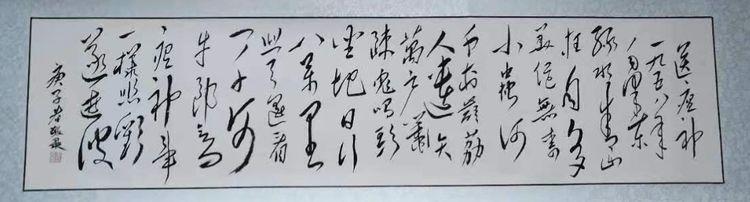 送瘟神
一九五八年
毛泽东
绿水青山
枉自多
华佗無奈
小蟲何
千村薜荔
人遗矢
萬户萧
疎鬼唱歌
坐地日行
八万里
巡天遥看
一千河
牛郎欲问
瘟神事
一樣悲歡
逐逝波
庚子